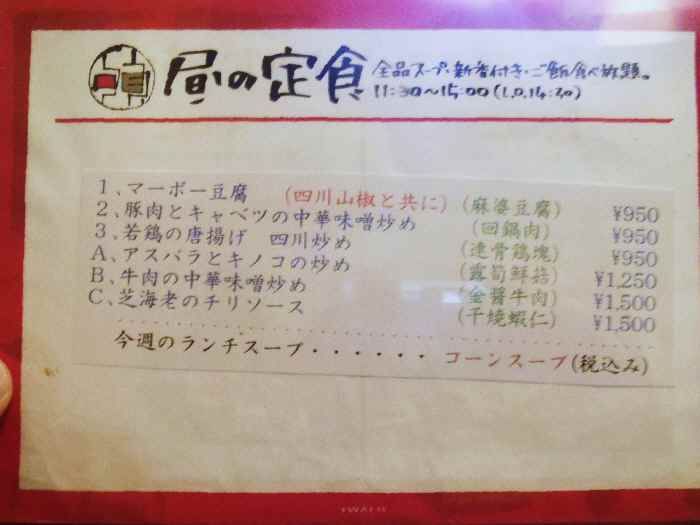 昼の定食
全品スープ・新香付き・ご飯食べ放題。
11:30〜15:00(L.O.14:30)
1、マーボー豆腐 (四川山椒と共に) (麻婆豆腐) ¥950
2、豚肉とキャベツの中華味噌炒め (回鍋肉) ¥950
3、若鶏の唐揚げ 四川炒め (連骨鶏塊) ¥950
A、アスパラとキノコの炒め (露筍鮮菇) ¥1,250
B、牛肉の中華味噌炒め (金醤牛肉) ¥1,500
C、芝海老のチリソース (干焼蝦仁) ¥1,500
今週のランチスープ・・・・・・ コーンスープ(税込み)